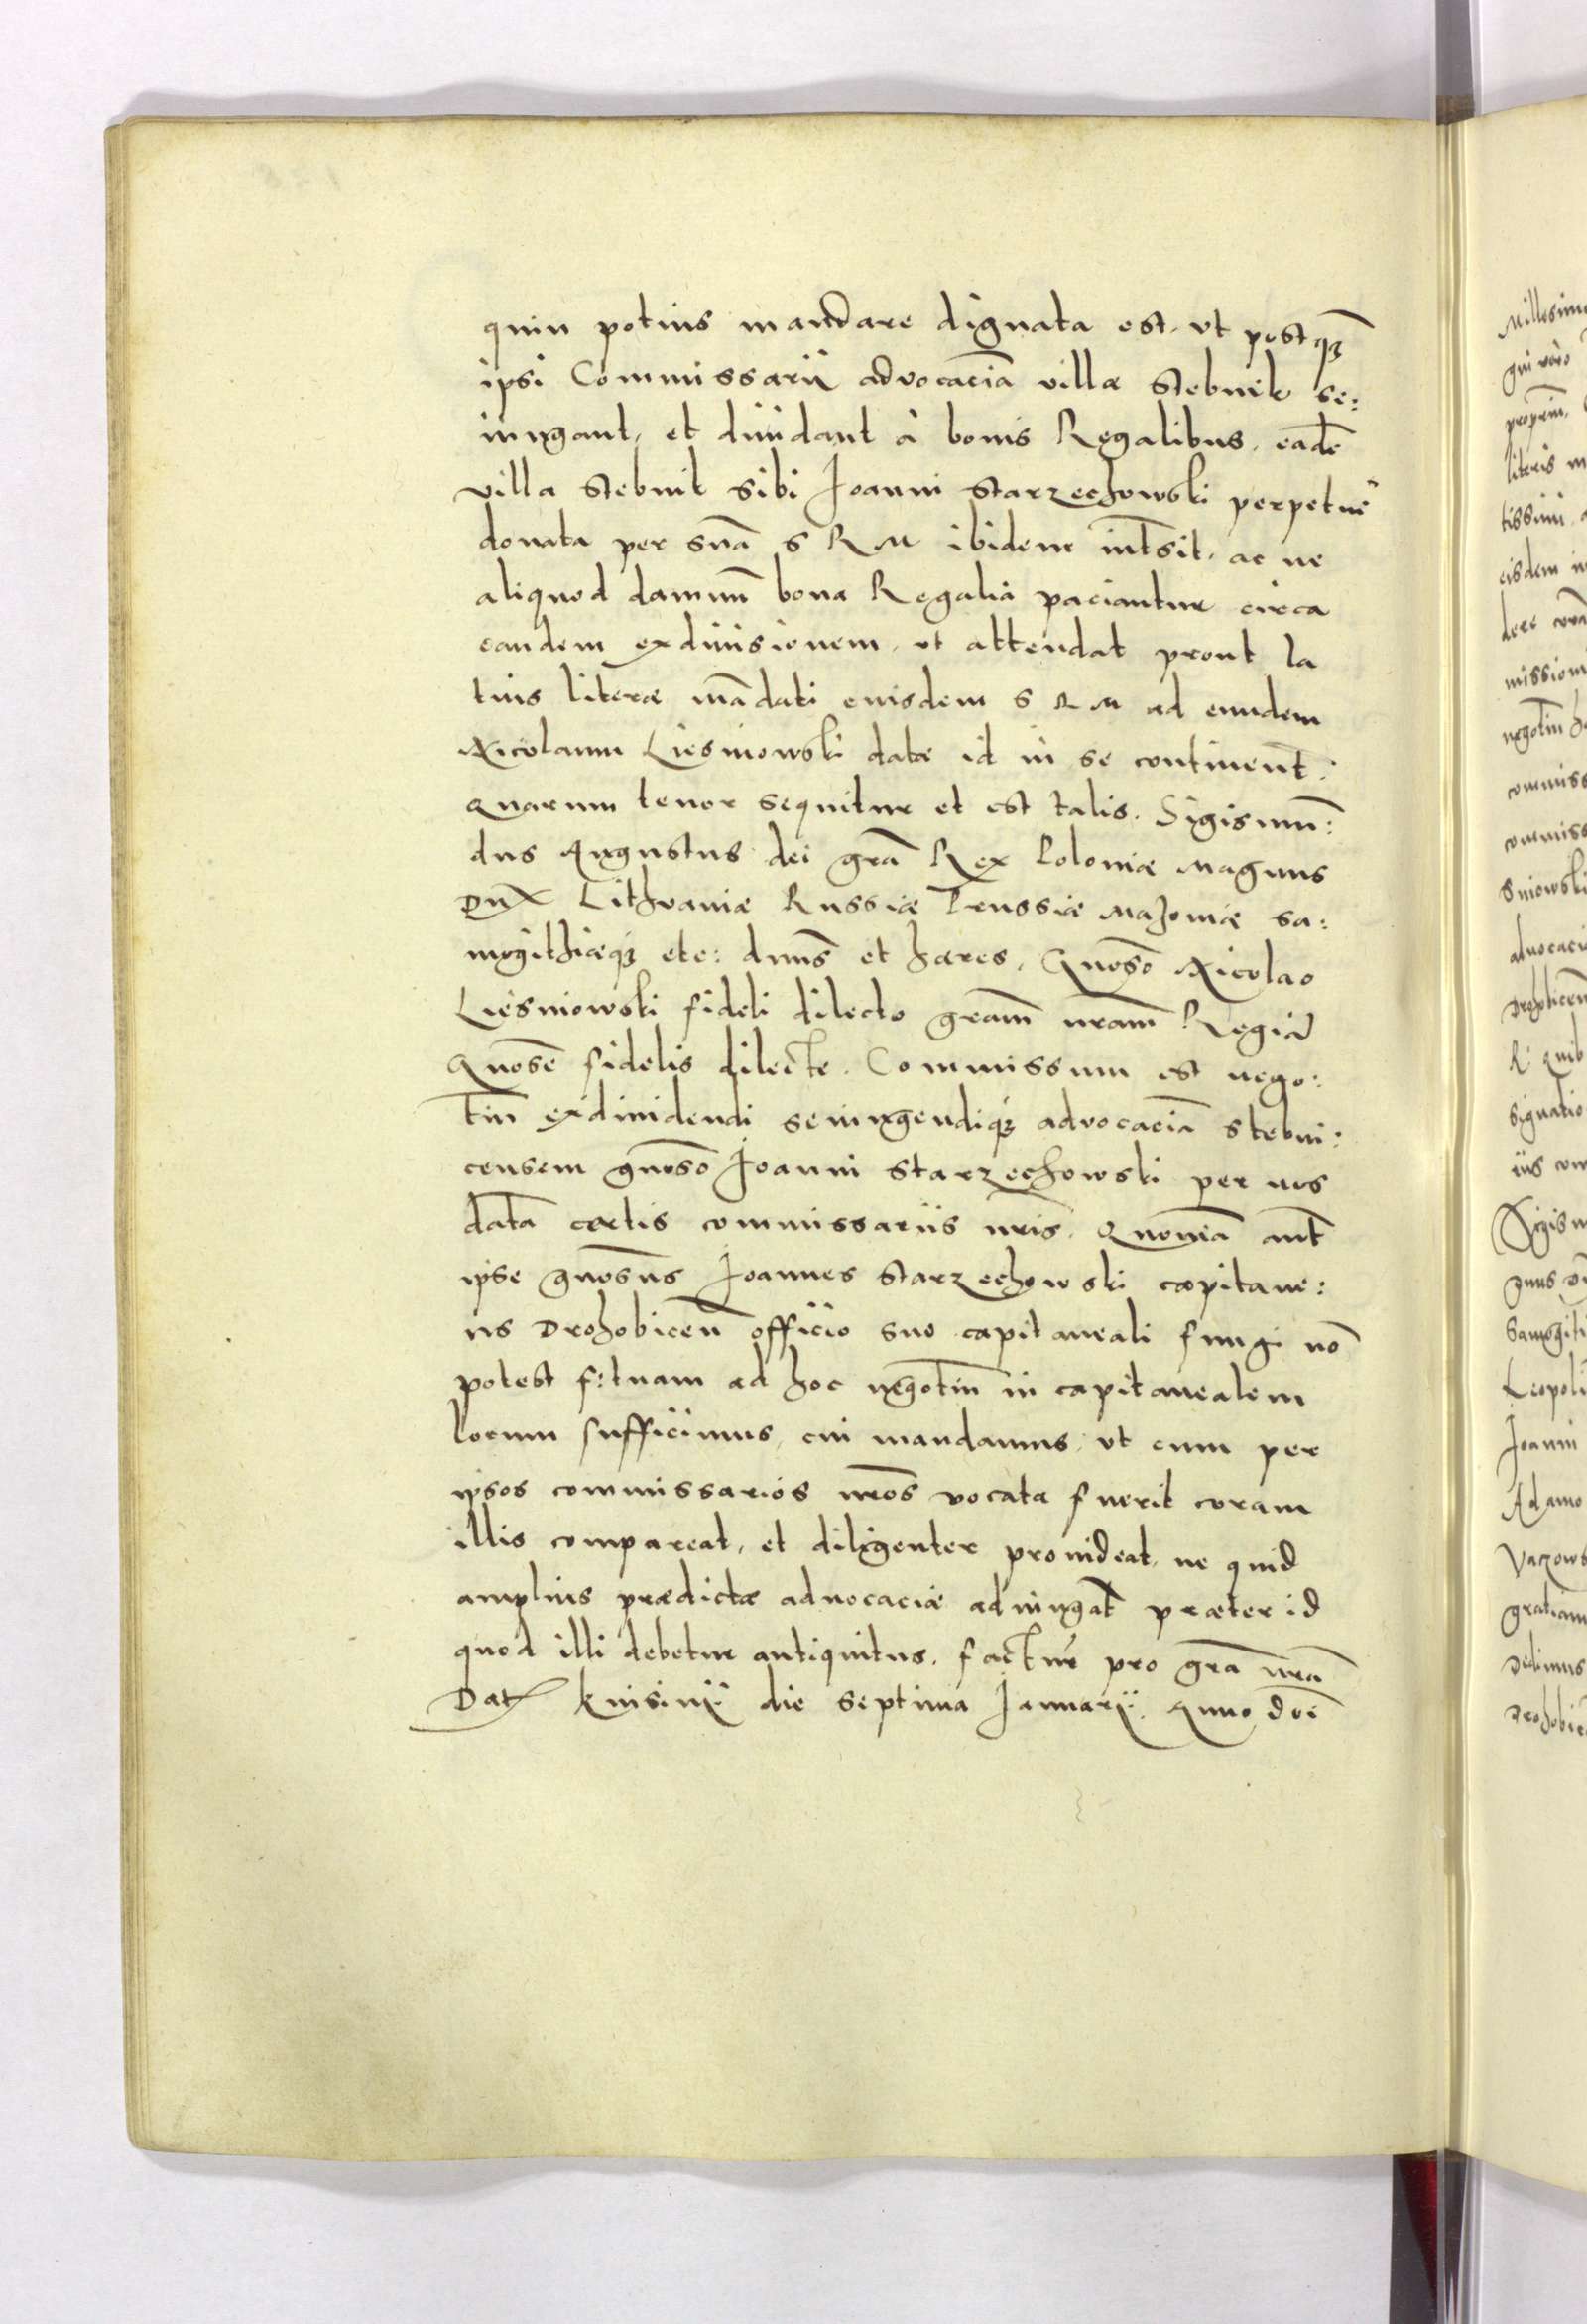 quin potius mandare dignata est, vt postq̃ꝫ
ipsi Commissarij advocaciã villæ Stebnik se:
iungant, et diuidant à bonis Regalibus, eadẽ
villa Stebnik sibi Joanni Starzechowski perpetue
donata per suã S R M ibidem int̃sit, ac ne
aliquod damnũ bona Regalia paciantur circa
eandem exdiuisionem, vt attendat prout la
tius literæ mãdati eiusdem S R M ad eundem
Nicolaum Liesniowski datæ id in se continent̃:
Quarum tenor sequitur et est talis. Sigismũ:
dus Augustus dei grã Rex Poloniæ Magnus
Dux Lithvaniæ Russiæ Prussiæ Mazoviæ Sa:
mogithiæqꝫ etc: dnũs et hæres, Gnõso Nicolao
Liesniowski fideli dilecto gram̃ nram̃ Regiã
Gnõse fidelis dilecte. Commissum est nego:
tiũ exdiuidendi seiungendiqꝫ advocaciã Stebni:
censem gnõso Joanni Starzechowski per nos
datã certis commissariis nr̃is, Quoniã aut̃
ipse gnõsus Joannes Starzechowski capitane:
us Drohobiceñ officio suo capitaneali fungi nõ
potest f: tuam ad hoc negotiũ in capitanealem
locum sufficimus, cui mandamus, vt cum per
ipsos commissarios nr̃os vocata fuerit coram
illis compareat, et diligenter prouideat, ne quid
amplius prædictæ aduocaciæ adiungat̃ præter id
quod illi debetur antiquitus, factur̃ pro grã nrã
Dat Knisinij die septima Januarij, Anno dñi

Millesim
literis
tissimi
eisdem
missioni
commiss
commiss
sniowski
aduocaci
signatio
Sigism
Leopoli
Joanni
Adamo
gratiam
Dedimus
Drohobic